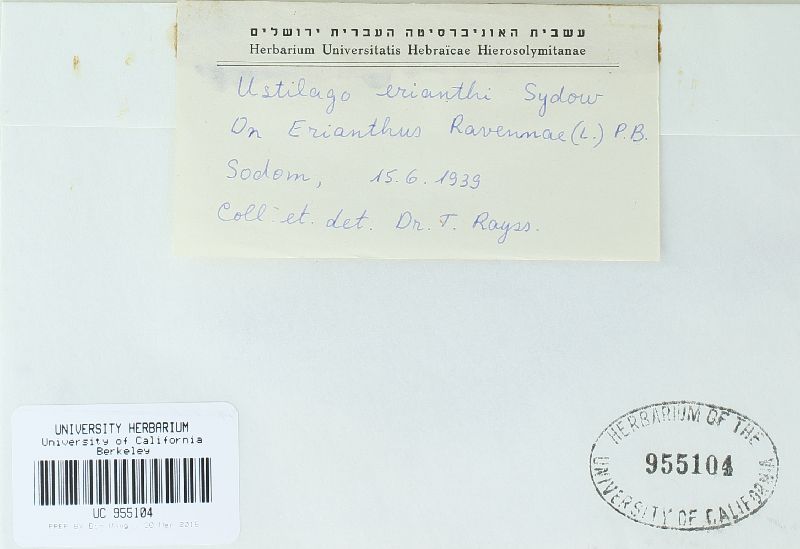 עשבית האוניברסיטה העברית ירושלים
Herbarium Universitatis Hebraïcae Hierosolymitanae
Ustilago erianthi Sydow
On Erianthus Ravennae (L.) P.B.
Sodom, 15.6.1939
Coll. et. det. Dr. T. Rayss.
UNIVERSITY HERBARIUM
University of California
Berkeley
UC 955104
PREP BY
HERBARIUM OF THE
955104
UNIVERSITY OF CALIFORNIA